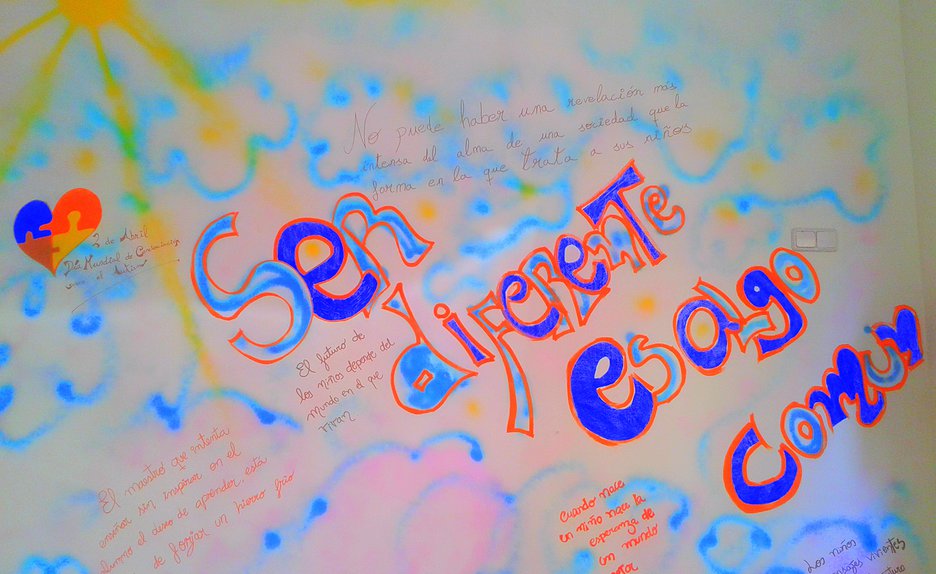 No puede haber una revelación más
intensa del alma de una sociedad que la
forma en la que trata a sus niños
2 de Abril
Día Mundial de Concienciación
el Autismo
Ser
diferente
es algo
comun
El futuro de
los niños depende del
mundo en el que
vivan
El maestro que intenta
enseñar sin inspirar en el
alumno el deseo de aprender, está
de forjar un hierro frío
Cuando nace
un niño nace la
esperanza de
un mundo
Los niños
mensajes vivientes